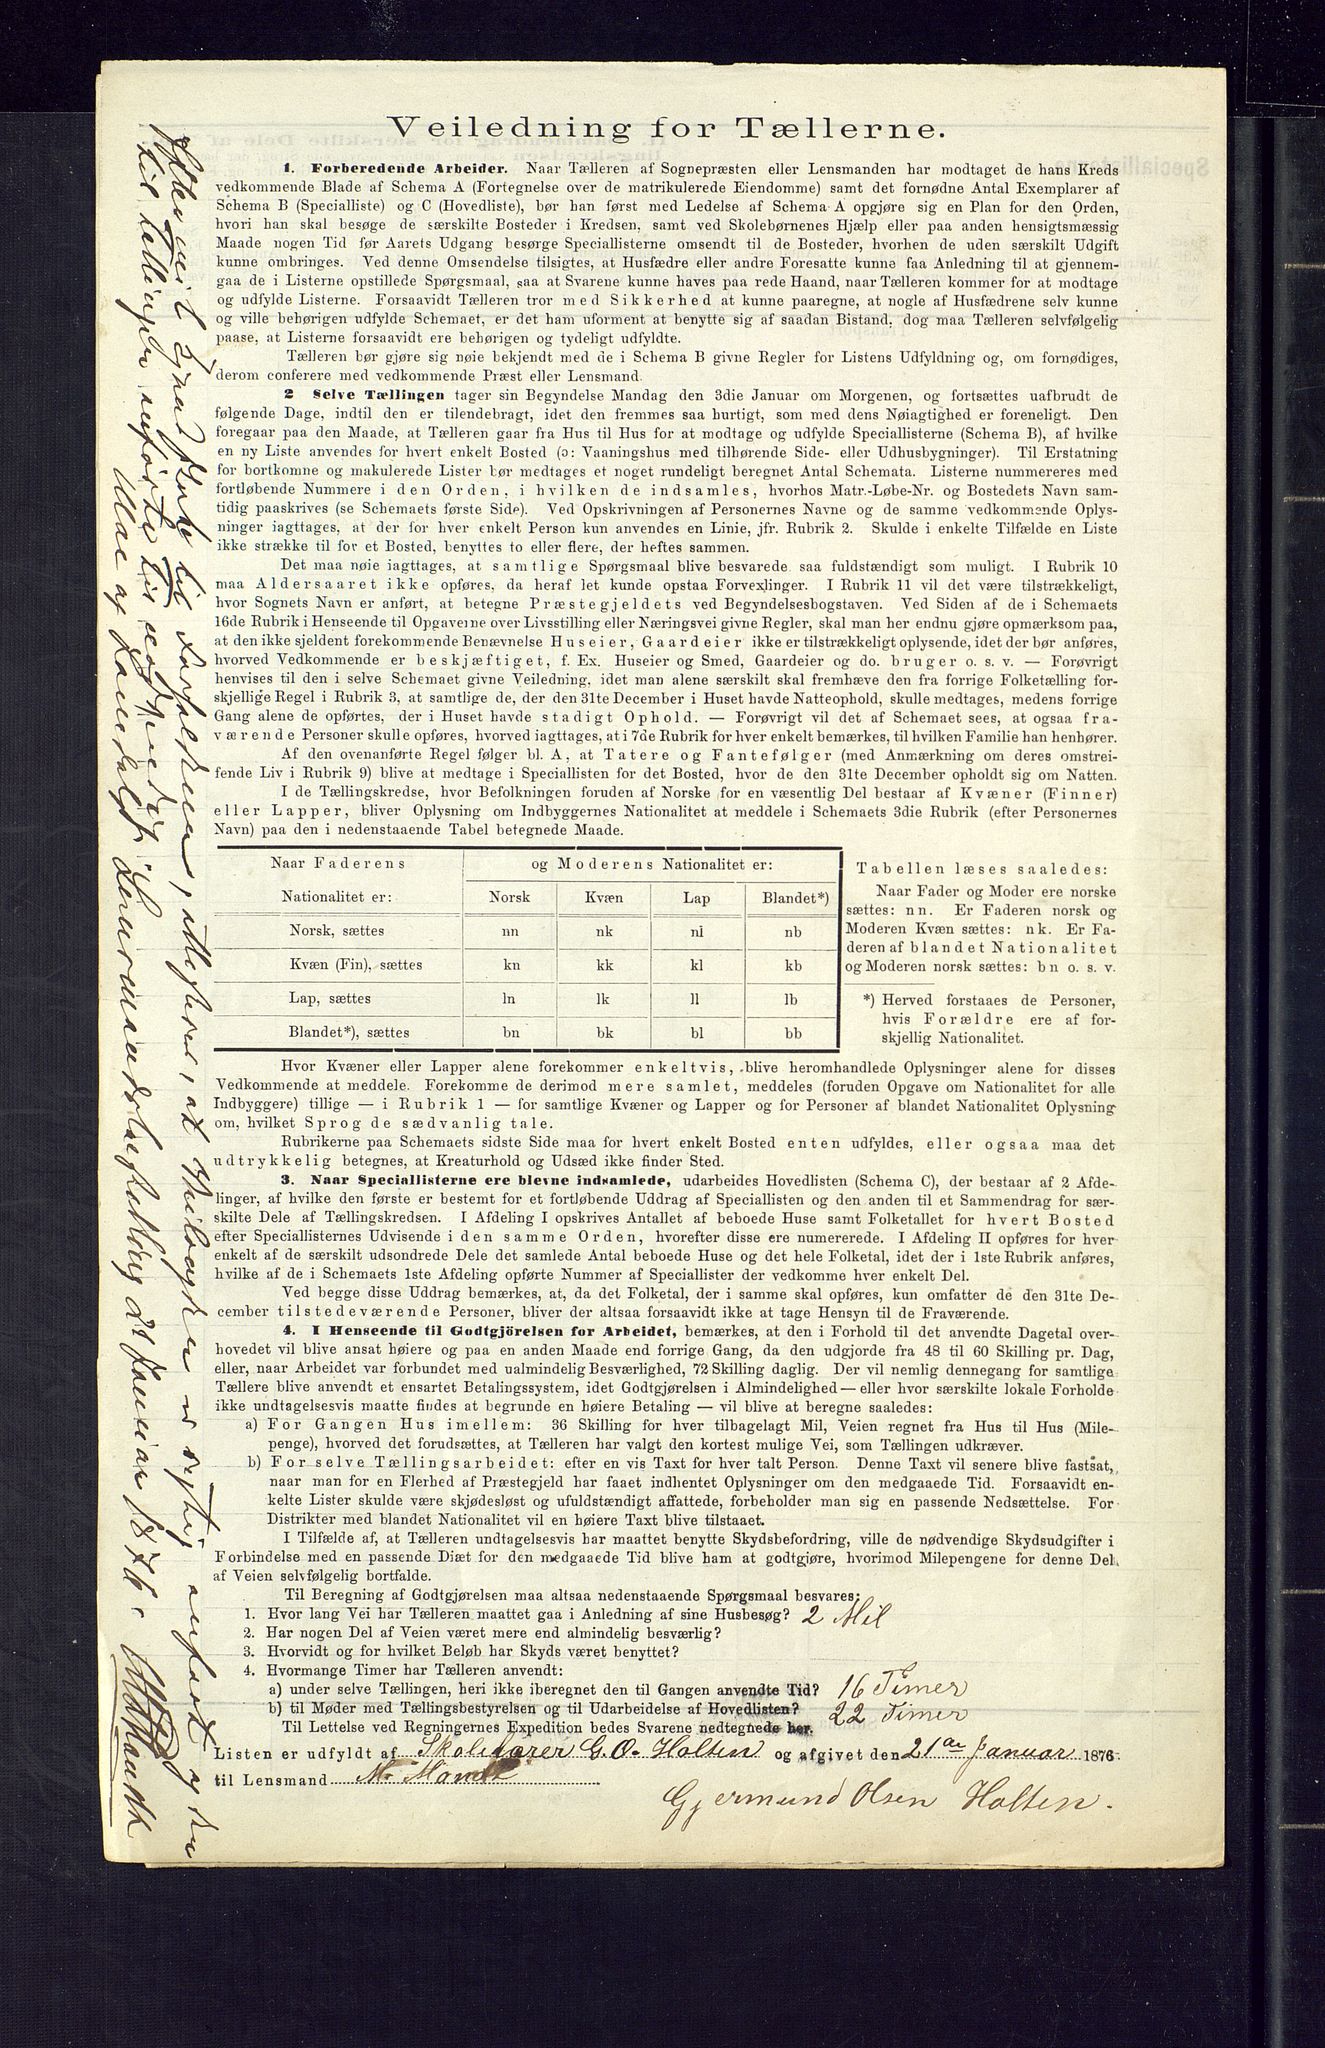 Veiledning for Tællerne.
1. Forberedende Arbeider. Naar Tælleren af Sognepræsten eller Lensmanden har modtaget de hans Kreds
vedkommende Blade af Schema A (Fortegnelse over de matrikulerede Eiendomme) samt det fornødne Antal Exemplarer af
Schema B (Specialliste) og C (Hovedliste), bør han først med Ledelse af Schema A opgjøre sig en Plan for den Orden,
hvori han skal besøge de særskilte Bosteder i Kredsen, samt ved Skolebørnenes Hjælp eller paa anden hensigtsmæssig
Maade nogen Tid før Aarets Udgang besørge Speciallisterne omsendt til de Bosteder, hvorhen de uden særskilt Udgift
kunne ombringes. Ved denne Omsendelse tilsigtes, at Husfædre eller andre Foresatte kunne faa Anledning til at gjennem-
gaa de i Listerne opstillede Spørgsmaal, saa at Svarene kunne haves paa rede Haand, naar Tælleren kommer for at modtage
og udfylde Listerne. Forsaavidt Tælleren tror med Sikkerhed at kunne paaregne, at nogle af Husfædrene selv kunne
og ville behørigen udfylde Schemaet, er det ham uforment at benytte sig af saadan Bistand, dog maa Tælleren selvfølgelig
paase, at Listerne forsaavidt ere behørigen og tydeligt udfyldte.
Tælleren bør gjøre sig nøie bekjendt med de i Schema B givne Regler for Listens Udfyldning og, om fornødiges,
derom conferere med vedkommende Præst eller Lensmand.
2 Selve Tællingen tager sin Begyndelse Mandag den 3die Januar om Morgenen, og fortsættes uafbrudt de
følgende Dage, indtil den er tilendebragt, idet den fremmes saa hurtigt, som med dens Nøiagtighed er foreneligt. Den
foregaar paa den Maade, at Tælleren gaar fra Hus til Hus for at modtage og udfylde Speciallisterne (Schema B), af hvilke
en ny Liste anvendes for hvert enkelt Bosted (ɔ: Vaaningshus med tilhørende Side- eller Udhusbygninger). Til Erstatning
for bortkomne og makulerede Lister bør medtages et noget rundeligt beregnet Antal Schemata. Listerne nummereres med
fortløbende Nummere i den Orden, i hvilken de indsamles, hvorhos Matr.-Løbe-Nr. og Bostedets Navn sam-
tidig paaskrives (se Schemaets første Side). Ved Opskrivningen af Personernes Navne og de samme vedkommende Oplys-
ninger iagttages, at der for hver enkelt Person kun anvendes en Linie, jfr. Rubrik 2. Skulde i enkelte Tilfælde en Liste
ikke strække til for et Bosted, benyttes to eller flere, der heftes sammen.
Det maa nøie iagttages, at samtlige Spørgsmaal blive besvarede saa fuldstændigt som muligt. I Rubrik 10
maa Aldersaaret ikke opføres, da heraf let kunde opstaa Forvexlinger. I Rubrik 11 vil det være tilstrækkeligt,
hvor Sognets Navn er anført, at betegne Præstegjeldets ved Begyndelsesbogstaven. Ved Siden af de i Schemaets
16de Rubrik i Henseende til Opgaverne over Livsstilling eller Næringsvei givne Regler, skal man her endnu gjøre opmærksom paa,
at den ikke sjeldent forekommende Benævnelse Huseier, Gaardeier ikke er tilstrækkeligt oplysende, idet der bør anføres,
hvorved Vedkommende er beskjæftiget, f. Ex. Huseier og Smed, Gaardeier og do. bruger o. s. v. — Forøvrigt
henvises til den i selve Schemaet givne Veiledning, idet man alene særskilt skal fremhæve den fra forrige Folketælling for-
skjellige Regel i Rubrik 3, at samtlige de, der den 31te December i Huset havde Natteophold, skulle medtages, medens forrige
Gang alene de opførtes, der i Huset havde stadigt Ophold. — Forøvrigt vil det af Schemaet sees, at ogsaa fra-
værende Personer skulle opføres, hvorved iagttages, at i 7de Rubrik for hver enkelt bemærkes, til hvilken Familie han henhører.
Af den ovenanførte Regel følger bl. A, at Tatere og Fantefølger (med Anmærkning om deres omstrei-
fende Liv i Rubrik 9) blive at medtage i Speciallisten for det Bosted, hvor de den 31te December opholdt sig om Natten.
I de Tællingskredse, hvor Befolkningen foruden af Norske for en væsentlig Del bestaar af Kvæner (Finner)
eller Lapper, bliver Oplysning om Indbyggernes Nationalitet at meddele i Schemaets 3die Rubrik (efter Personernes
Navn) paa den i nedenstaaende Tabel betegnede Maade.
Naar Faderens og Moderens Nationalitet er:
Nationalitet er: Norsk Kvæn Lap Blandet*)
Norsk, sættes nn nk nl nb
Kvæn (Fin), sættes kn kk kl kb
Lap, sættes ln lk ll lb
Blandet*), sættes bn bk bl bb
Tabellen læses saaledes:
Naar Fader og Moder ere norske
sættes: nn. Er Faderen norsk og
Moderen Kvæn sættes: nk. Er Fa-
deren af blandet Nationalitet
og Moderen norsk sættes: bn o. s. v.
*) Herved forstaaes de Personer,
hvis Forældre ere af for-
skjellig Nationalitet.
Hvor Kvæner eller Lapper alene forekommer enkeltvis, blive heromhandlede Oplysninger alene for disses
Vedkommende at meddele. Forekomme de derimod mere samlet, meddeles (foruden Opgave om Nationalitet for alle
Indbyggere) tillige — i Rubrik 1 — for samtlige Kvæner og Lapper og for Personer af blandet Nationalitet Oplysning
om, hvilket Sprog de sædvanlig tale.
Rubrikerne paa Schemaets sidste Side maa for hvert enkelt Bosted enten udfyldes, eller ogsaa maa det
udtrykkelig betegnes, at Kreaturhold og Udsæd ikke finder Sted.
3. Naar Speciallisterne ere blevne indsamlede, udarbeides Hovedlisten (Schema C), der bestaar af 2 Afde-
linger, af hvilke den første er bestemt for et fortløbende Uddrag af Speciallisten og den anden til et Sammendrag for sær-
skilte Dele af Tællingskredsen. I Afdeling I opskrives Antallet af beboede Huse samt Folketallet for hvert Bosted
efter Speciallisternes Udvisende i den samme Orden, hvorefter disse ere numererede. I Afdeling II opføres for hver
enkelt af de særskilt udsondrede Dele det samlede Antal beboede Huse og det hele Folketal, idet der i 1ste Rubrik anføres,
hvilke af de i Schemaets 1ste Afdeling opførte Nummer af Speciallister der vedkomme hver enkelt Del.
Ved begge disse Uddrag bemærkes, at, da det Folketal, der i samme skal opføres, kun omfatter de den 31te De-
cember tilstedeværende Personer, bliver der altsaa forsaavidt ikke at tage Hensyn til de Fraværende.
4. I Henseende til Godtgjörelsen for Arbeidet, bemærkes, at den i Forhold til det anvendte Dagetal over-
hovedet vil blive ansat høiere og paa en anden Maade end forrige Gang, da den udgjorde fra 48 til 60 Skilling pr. Dag,
eller, naar Arbeidet var forbundet med ualmindelig Besværlighed, 72 Skilling daglig. Der vil nemlig dennegang for samtlige
Tællere blive anvendt et ensartet Betalingssystem, idet Godtgjørelsen i Almindelighed — eller hvor særskilte lokale Forholde
ikke undtagelsesvis maatte findes at begrunde en høiere Betaling — vil blive at beregne saaledes:
a) For Gangen Hus imellem: 36 Skilling for hver tilbagelagt Mil, Veien regnet fra Hus til Hus (Mile-
penge), hvorved det forudsættes, at Tælleren har valgt den kortest mulige Vei, som Tællingen udkræver.
b) For selve Tællingsarbeidet: efter en vis Taxt for hver talt Person. Denne Taxt vil senere blive fastsat,
naar man for en Flerhed af Præstegjeld har faaet indhentet Oplysninger om den medgaaede Tid. Forsaavidt en-
kelte Lister skulde være skjødesløst og ufuldstændigt affattede, forbeholder man sig en passende Nedsættelse. For
Distrikter med blandet Nationalitet vil en høiere Taxt blive tilstaaet.
I Tilfælde af, at Tælleren undtagelsesvis har maattet benytte Skydsbefordring, ville de nødvendige Skydsudgifter i
Forbindelse med en passende Diæt for den medgaaede Tid blive ham at godtgjøre, hvorimod Milepengene for denne Del
af Veien selvfølgelig bortfalde.
Til Beregning af Godtgjørelsen maa altsaa nedenstaaende Spørgsmaal besvares:
1. Hvor lang Vei har Tælleren maattet gaa i Anledning af sine Husbesøg? 2 Mil
2. Har nogen Del af Veien været mere end almindelig besværlig?
3. Hvorvidt og for hvilket Beløb har Skyds været benyttet?
4. Hvormange Timer har Tælleren anvendt:
a) under selve Tællingen, heri ikke iberegnet den til Gangen anvendte Tid? 16 Timer
b) til Møder med Tællingsbestyrelsen og til Udarbeidelse af Hovedlisten? 22 Timer
Til Lettelse ved Regningernes Expedition bedes Svarene nedtegnede her.
Listen er udfyldt af Skolelærer G. O. Holten og afgivet den 21de Januar 1876
til Lensmand M. Mandt
Gjermund Olsen Holten.
Efter mit Kjendskab til Forholdene, attesteres, at Veilægden er rigtig anført og den
til tællingen anførte tid
Moe og Lauerdals Lensmandsbestilling 21 Januar 1876.
M Mandt